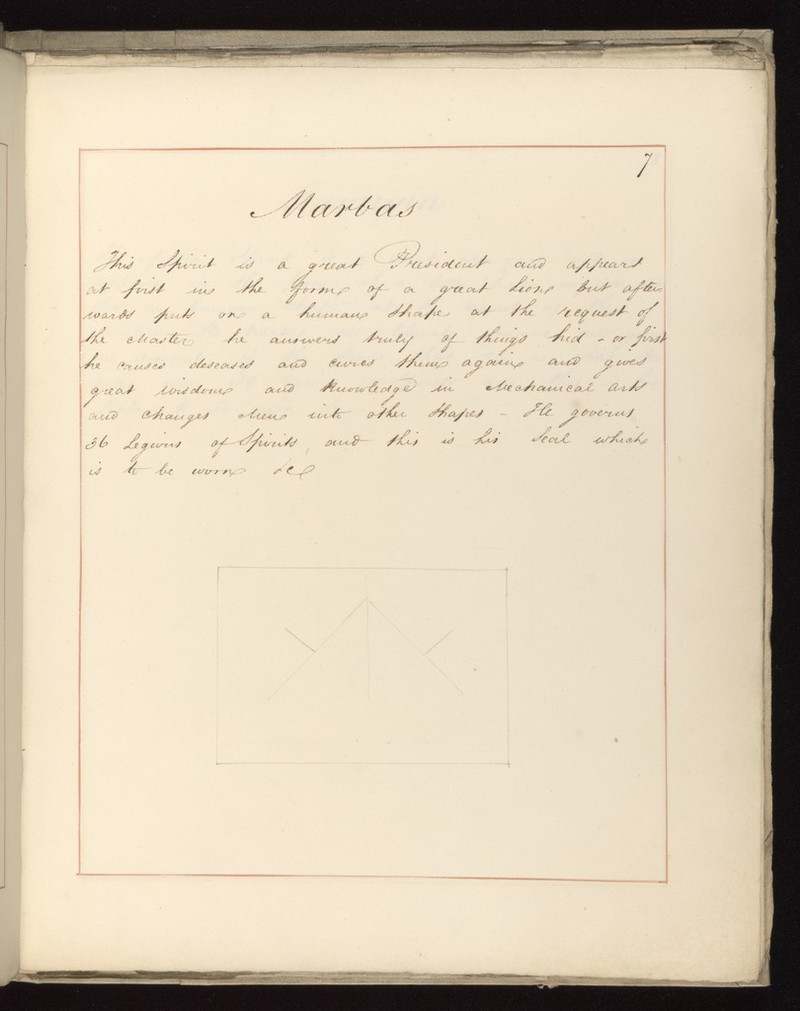 7
Marbas
This Spirit is a great President and appears
at first in the form of a great Lion but after
wards puts on a human shape at the request of
the Master he answers truly of things hid - or first
he causes deseases and cures them again and gives
great wisdom and knowledge in Mechanical arts
and changes Men into other shapes - He governs
36 Legions of Spirits, and this is his Seal which
is to be worn &c